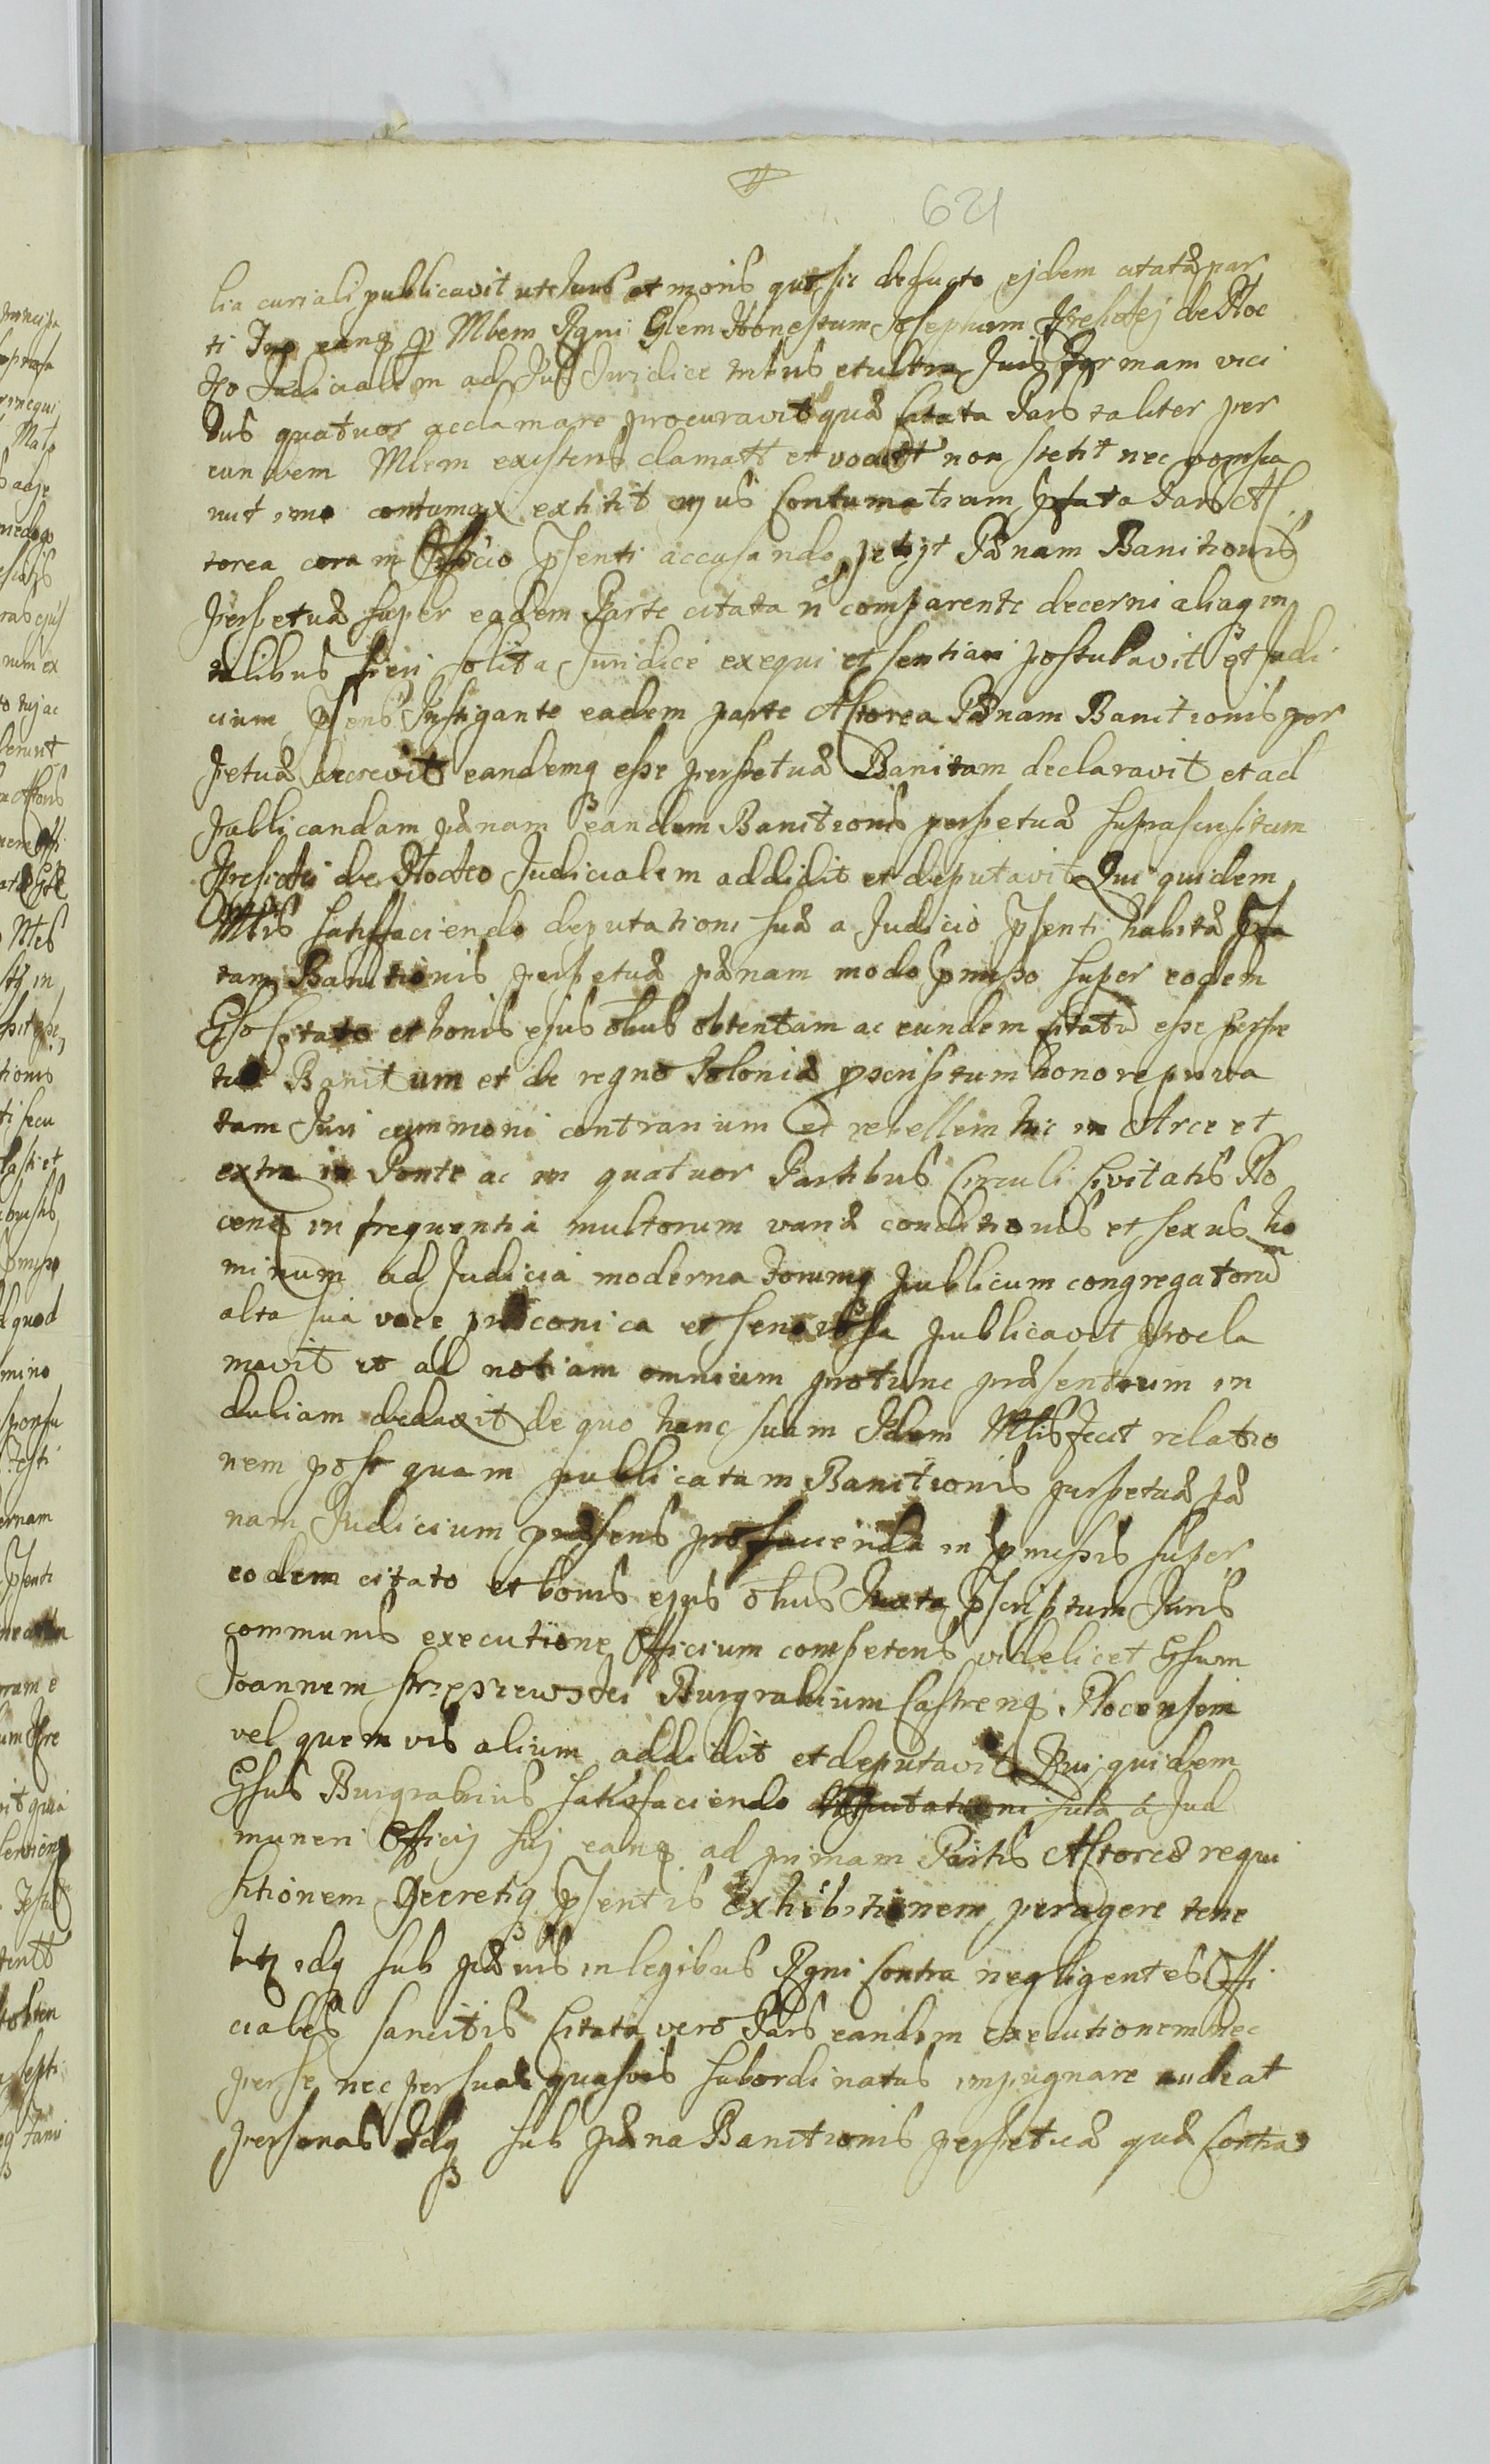 621
lia curiali publicavit uti Juris et moris que sic de facto ejdem citatæ par
ti Jmo eanq p Mlem Rgni Glem Honestum Josephum de Ploc
ko Judicialem ad Jus Juridice tribus et ultra Juris formam vici
bus quatuor acclamare procuravit quæ Citata Pars taliter per
eundem Mlem existens clamatt et vocatt non stetit nec compa
ruit imo contumax extitit cujus Contumatiam pfata Pars Ac
torea coram Officio psenti accusando petijt Pænam Banitionis
perpetuæ super eadem Parte citata n comparente decerni aliaq in
talibus fieri solita Juridice exequi et sentiari postulavit et Judi
cium psens Instigante eadem parte Actorea Pænam Banitionis per
petuæ decrevit eandemq esse perpetuæ Banitam declaravit et ad
publicandam pænam eandem Banitionis perpetuæ suprascriptum
de Plocko Judicialem addidit et deputavit Qui quidem
Mlis satisfaciendo deputationi suæ a Judicio psenti habitæ pfa
tam Banitionis perpetuæ pænam modo pmisso super eodem
Gso Citato et bonis ejus obus obtentam ac eundem citatu esse perpe
tuo Banitum et de regno Poloniæ pscriptum honore priva
tum Juri communi contrarium et rebellem hic in Arce et
extra in Ponte ac in quatuor Partibus Circuli Civitatis Plo
cens in frequentia multorum variæ conditionis et sexus ho
minum ad Judicia moderna forumq publicum congregatoru
alta sua voce præconica et senorosa publicavit procla
mavit et ad notiam omnium protunc præsentium in
dubiam deduxit de quo hanc suam Idem Mlis fecit relatio
nem post quam publicatam Banitionis perpetuæ pæ
nam Judicium præsens pro facienda in pmissis super
eodem citato et bonis ejus obus Juxta pscriptum Juris
communis executione Officium competens videlicet Gsum
Joannem Burgrabium Castrens Plocensem
vel quem vis alium addidit et deputavit Qui quidem
Gsus Burgrabius satisfaciendo deputationi suæ a Jud
muneri Officij sui eanq ad primam Partis Actoreæ requi
sitionem Decretiq psentis exhibitionem peragere tene
btr idq sub pænis in legibus Rgni Contra negligentes Offi
ciales sancitis Citata vero Pars eandem executionem nec
per se nec per suas quasvis subordinatas impugnare audeat
personas Idq sub pæna Banitionis perpetuæ quæ Contra